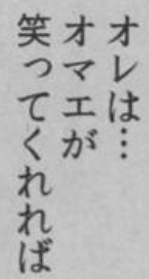 オレは…
オマエが
笑ってくれれば